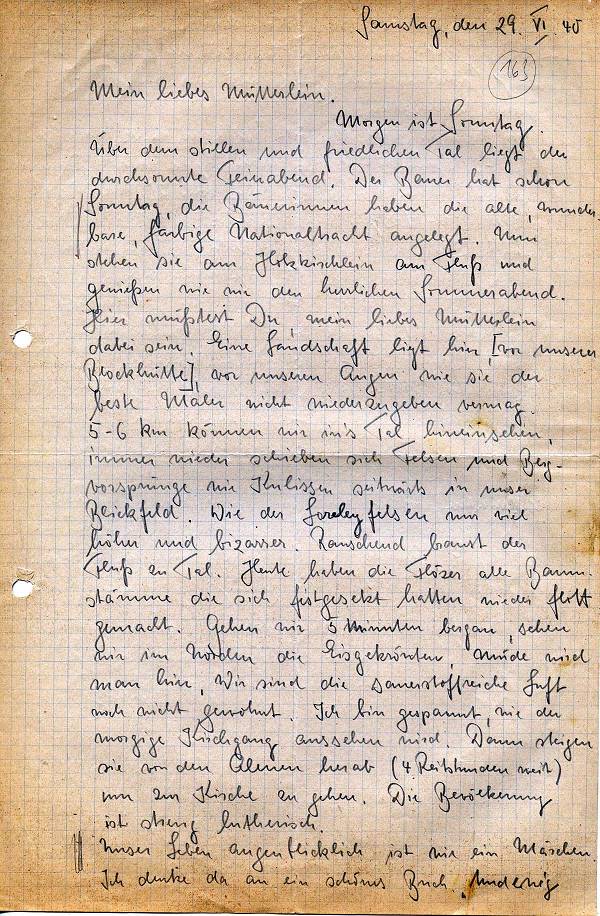 Samstag, den 29. VI. 40
163
Mein liebes Mütterlein.
Morgen ist Sonntag.
Über dem stillen und friedlichen Tal liegt der
durchsonnte Feierabend. Der Bauer hat schon
Sonntag, die Bäuerinnen haben die alte, wunder-
bare, farbige Nationaltracht angelegt. Nun
stehen sie am Holzkirchlein am Fluß und
genießen wie wir den herrlichen Sommerabend.
Hier müßtest Du, mein liebes Mütterlein
dabei sein. Eine Landschaft liegt hier, [vor unserer
Blockhütte], vor unseren Augen wie sie der
beste Maler nicht wiederzugeben vermag.
5-6 km können wir in's Tal hineinsehen,
immer wieder schieben sich Felsen und Berg-
vorsprünge wie Kulissen seitwärts in unser
Blickfeld. Wie der Loreleyfelsen nur viel
höher und bizarrer. Rauschend braust der
Fluß zu Tal. Heute haben die Flözer alle Baum-
stämme die sich festgesetzt hatten wieder flott
gemacht. Gehen wir 5 Minuten bergan, sehen
wir im Norden die Eisgekrönten, müde wird
man hier, wir sind die sauerstoffreiche Luft
noch nicht gewohnt. Ich bin gespannt, wie der
morgige Kirchgang aussehen wird. Dann steigen
sie von den Almen herab (4 Reitstunden weit)
um zur Kirche zu gehen. Die Bevölkerung
ist streng lutherisch.
Unser Leben augenblicklich ist wie ein Märchen.
Ich denke da an ein schönes Buch,